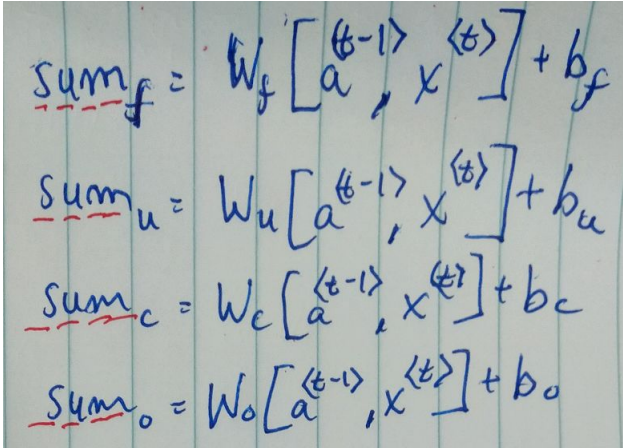 sum_f = W_f [a^<t-1>, x^<t>] + b_f
sum_u = W_u [a^<t-1>, x^<t>] + b_u
sum_c = W_c [a^<t-1>, x^<t>] + b_c
sum_o = W_o [a^<t-1>, x^<t>] + b_o